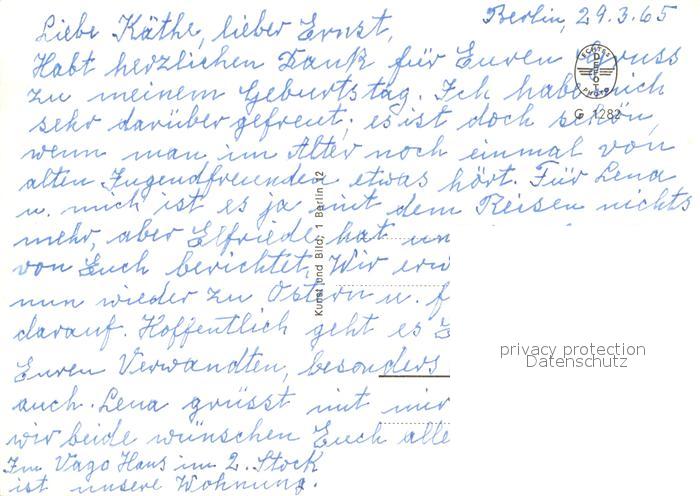 Berlin, 29.3.65
Liebe Käthe, lieber Ernst,
Habt herzlichen Dank für Euren Gruss
zu meinem Geburtstag. Ich habe mich
sehr darüber gefreut; es ist doch schön,
wenn man im Alter noch einmal von
alten Jugendfreunden etwas hört. Für Lena
u. mich ist es ja mit dem Reisen nichts
mehr, aber Elfriede hat un
von Euch berichtet. Wir erw
nun wieder zu Ostern u. f
darauf. Hoffentlich geht es E
Euren Verwandten, besonders
auch. Lena grüsst mit mir
wir beide wünschen Euch alle
Im Vago Haus im 2. Stock
ist unsere Wohnung.
ECHTES
DEFOT
PHOTO
G 1282
Kunst und Bild, 1 Berlin 12
privacy protection
Datenschutz